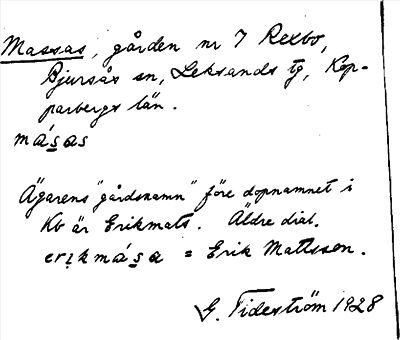 Massas, gården nr 7 Rexbo,
Bjursås sn, Leksands tg, Kop-
parbergs län.
màsas
Ägarens "gårdsnamn" före dopnamnet i
Kb är Erikmats. Äldre dial.
erikmàsa = Erik Matsson.
G. Tideström 1928